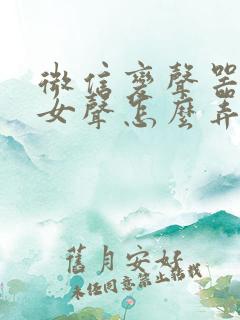 微信变聲器
女聲怎麼弄
舊月安好
未经同意禁止转载